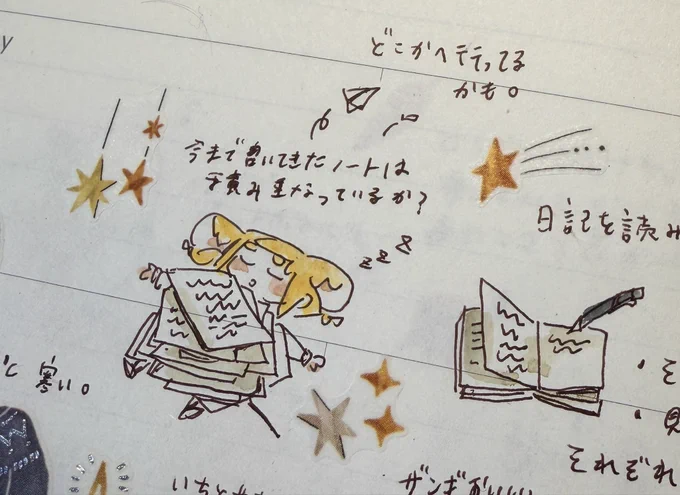 y
どこかへ行ってる
かも。
今まで書いてきたノートは
積み重なっているか?
zzz
日記を読み
と寒い。
・そ
・見
それぞれ